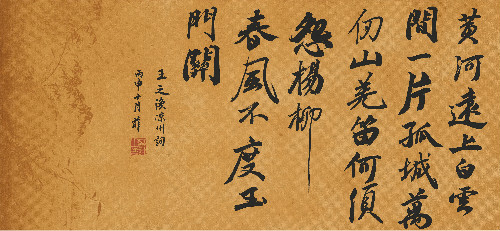 黄河遠上白雲
間一片孤城萬
仞山羌笛何須
怨楊柳
春風不度玉
門關
王之渙凉州詞
丙申十月